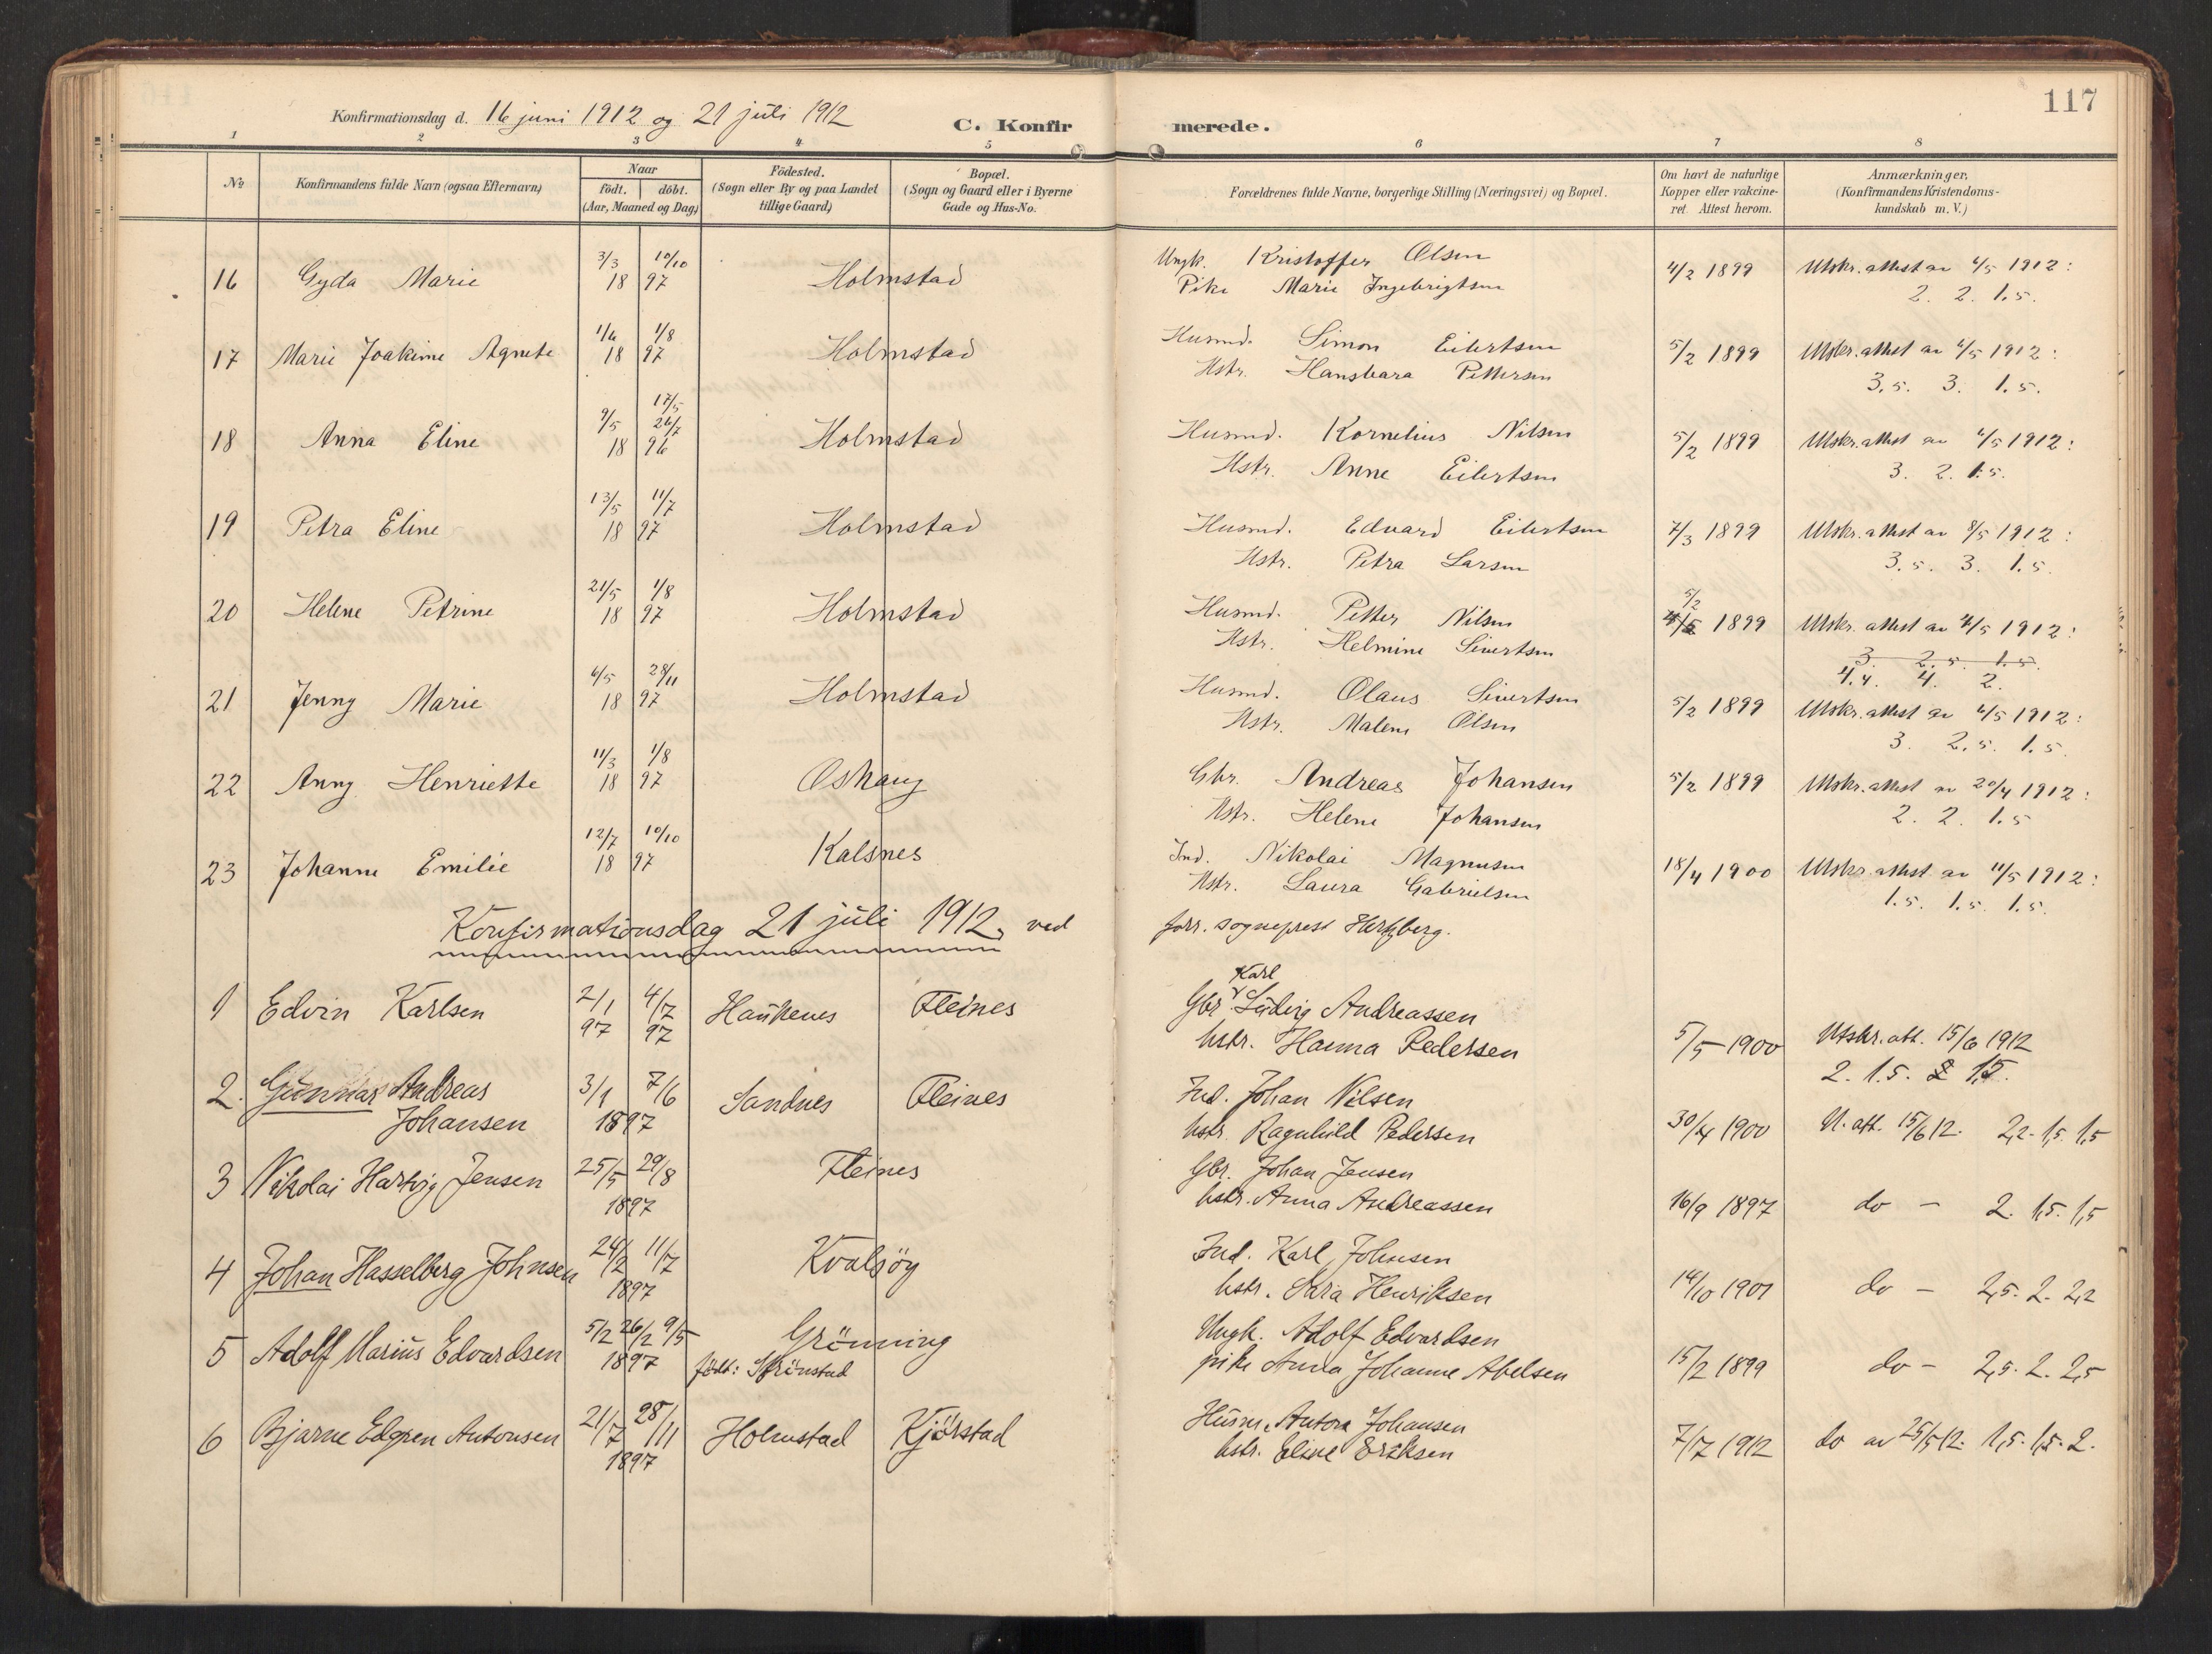 117
Konfirmationsdag d. 16 juni 1912 og 21 juli 1912
C. Konfirmerede.
1 2 3 4 5 6 7 8
No
Konfirmandens fulde Navn (ogsaa Efternavn)
Naar
födt. döbt.
(Aar, Maaned og Dag)
Födested.
(Sogn eller By og paa Landet
tillige Gaard)
Bopæl.
(Sogn og Gaard eller i Byerne
Gade og Hus-No.
Forældrenes fulde Navne, borgerlige Stilling (Næringsvei) og Bopæl.
Om havt de naturlige
Kopper eller vakcine-
ret. Attest herom.
Anmærkninger.
(Konfirmandens Kristendoms-
kundskab m. V.)
16 Gyda Marie 3/3 10/10 18 97 Holmstad
Ungk. Kristoffer Olsen
Pike Marie Ingebrigtsen
4/2 1899 Utskr. attest av 4/5 1912:
2. 2. 1.5.
17 Marie Joakime Agnete 1/6 1/8 18 97 Holmstad
Husmd. Simon Eilertsen
Hstr. Hansbara Pettersen
5/2 1899 Utskr. attest av 4/5 1912:
3,5. 3. 1.5.
18 Anna Eline 9/5 17/5 26/7 18 96 Holmstad
Husmd. Kornelius Nilsen
Hstr. Anne Eilertsen
5/2 1899 Utskr. attest av 4/5 1912:
3. 2. 1.5.
19 Petra Eline 13/5 11/7 18 97 Holmstad
Husmd. Edvard Eilertsen
Hstr. Petra Larsen
7/3 1899 Utskr. attest av 8/5 1912:
3.5. 3. 1.5.
20 Helene Petrine 21/5 1/8 18 97 Holmstad
Husmd. Petter Nilsen
Hstr. Helmine Sivertsen
5/2
1899 Utskr. attest av 4/5 1912:
3. 2.5. 1.5.
4.4. 4. 2.
21 Jenny Marie 6/5 28/11 18 97 Holmstad
Husmd. Olaus Sivertsen
Hstr. Malene Olsen
5/2 1899 Utskr. attest av 4/5 1912:
3. 2.5. 1.5.
22 Anny Henriette 11/3 1/8 18 97 Oshaug
Gbr. Andreas Johansen
Hstr. Helene Johansen
5/2 1899 Utskr. attest av 20/4 1912:
2. 2. 1.5
23 Johanne Emilie 12/7 10/10 18 97 Kalsnes
Ind. Nikolai Magnusen
Hstr. Laura Gabrielsen
18/4 1900 Utskr. attest av 11/5 1912:
1.5. 1.5. 1.5.
Konfirmationsdag 21 juli 1912, ved forr. sogneprest Hertzberg.
1 Edvin Karlsen 2/1 97 4/7 97 Haukenes Fleines
Karl
Gbr. Ludvig Andreassen
hstr. Hanna Pedersen
5/5 1900 Utskr. att. 15/6 1912
2. 1.5. 1,5.
2. Gunnar Andreas
Johansen 3/1 7/6 1897 Sandnes Fleines
Ind. Johan Nilsen
hstr. Ragnhild Pedersen
30/4 1900 U. att. 15/6 12. 2,2. 1,5. 1,5
3 Nikolai Hartvig Jensen 25/5 29/8 1897 Fleines
Gbr. Johan Jensen
hstr. Anna Andreassen
16/9 1897 do - 2. 1,5. 1,5
4 Johan Hasselberg Johnsen 24/2 11/7 1897 Kvalsöy
Ind. Karl Johnsen
hstr. Sara Henriksen
14/10 1901 do - 2,5. 2. 2,2
5 Adolf Marius Edvardsen 5/2 26/2 9/5 1897 Grönning
födt: Strönstad
Ungk. Adolf Edvardsen
pike Anna Johanne Abelsen
15/2 1899 do - 2,5. 2. 2,5
6 Bjarne Edgren Antonsen 21/7 28/11 1897 Holmstad Kjörstad
Husm. Anton Johansen
hstr. Eline Eriksen
7/7 1912 do av 25/5 12. 1,5. 1,5. 2.